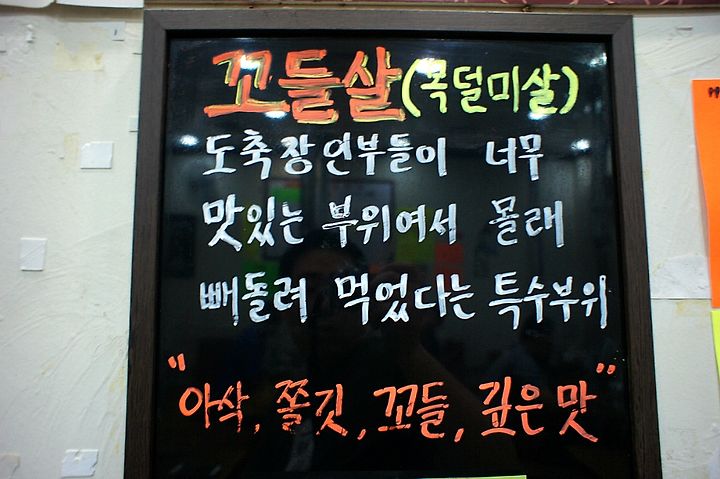 꼬들살(목덜미살)
도축장 인부들이 너무
맛있는 부위여서 몰래
빼돌려 먹었다는 특수부위
"아삭, 쫄깃, 꼬들, 깊은 맛"